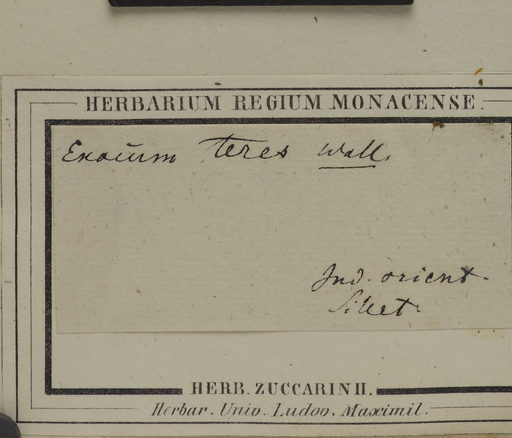 HERBARIUM REGIUM MONACENSE.
Exacum teres Wall.
Ind. orient.
Silhet.
HERB. ZUCCARINII.
Herbar. Univ. Ludov. Maximil.